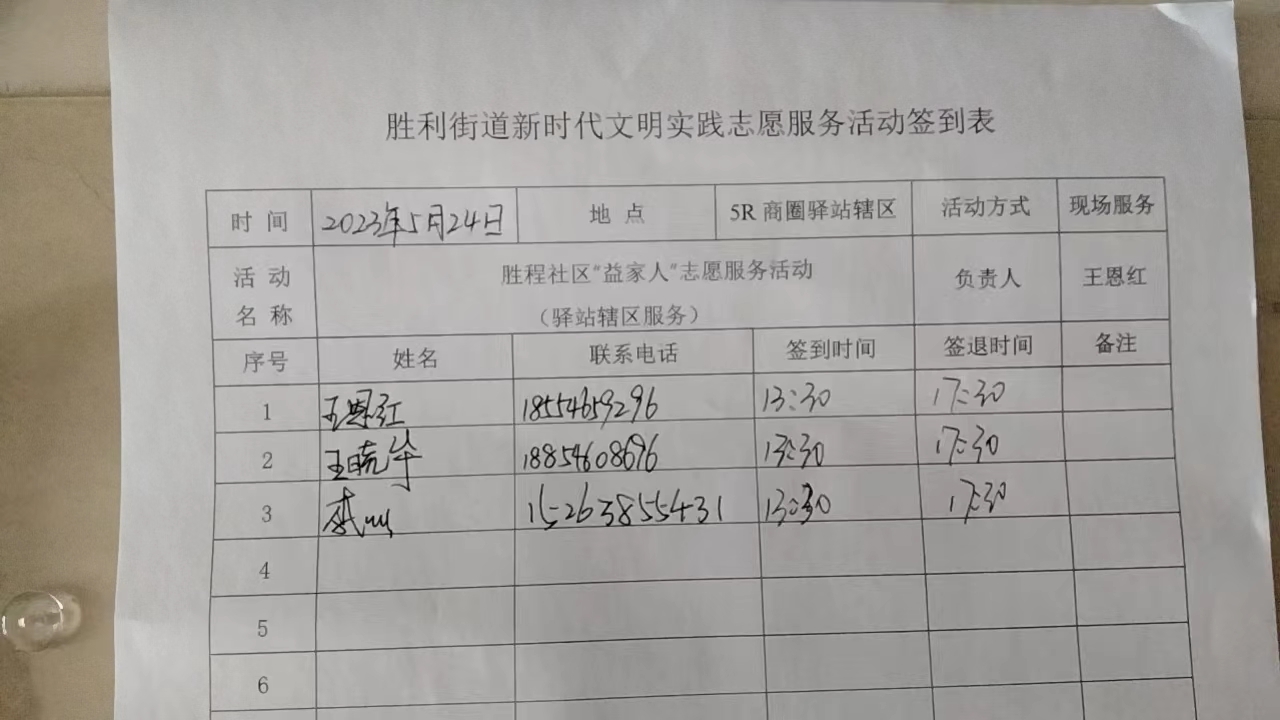 胜利街道新时代文明实践志愿服务活动签到表
时 间 2023年5月24日 地 点 5R 商圈驿站辖区 活动方式 现场服务
活 动 名 称 胜程社区“益家人”志愿服务活动 负责人 王恩红
（驿站辖区服务）
序号 姓名 联系电话 签到时间 签退时间 备注
1 王恩红 18554659296 13:30 17:30
2 王晓华 18854608696 13:30 17:30
3 15263855431 13:30 17:30
4
5
6